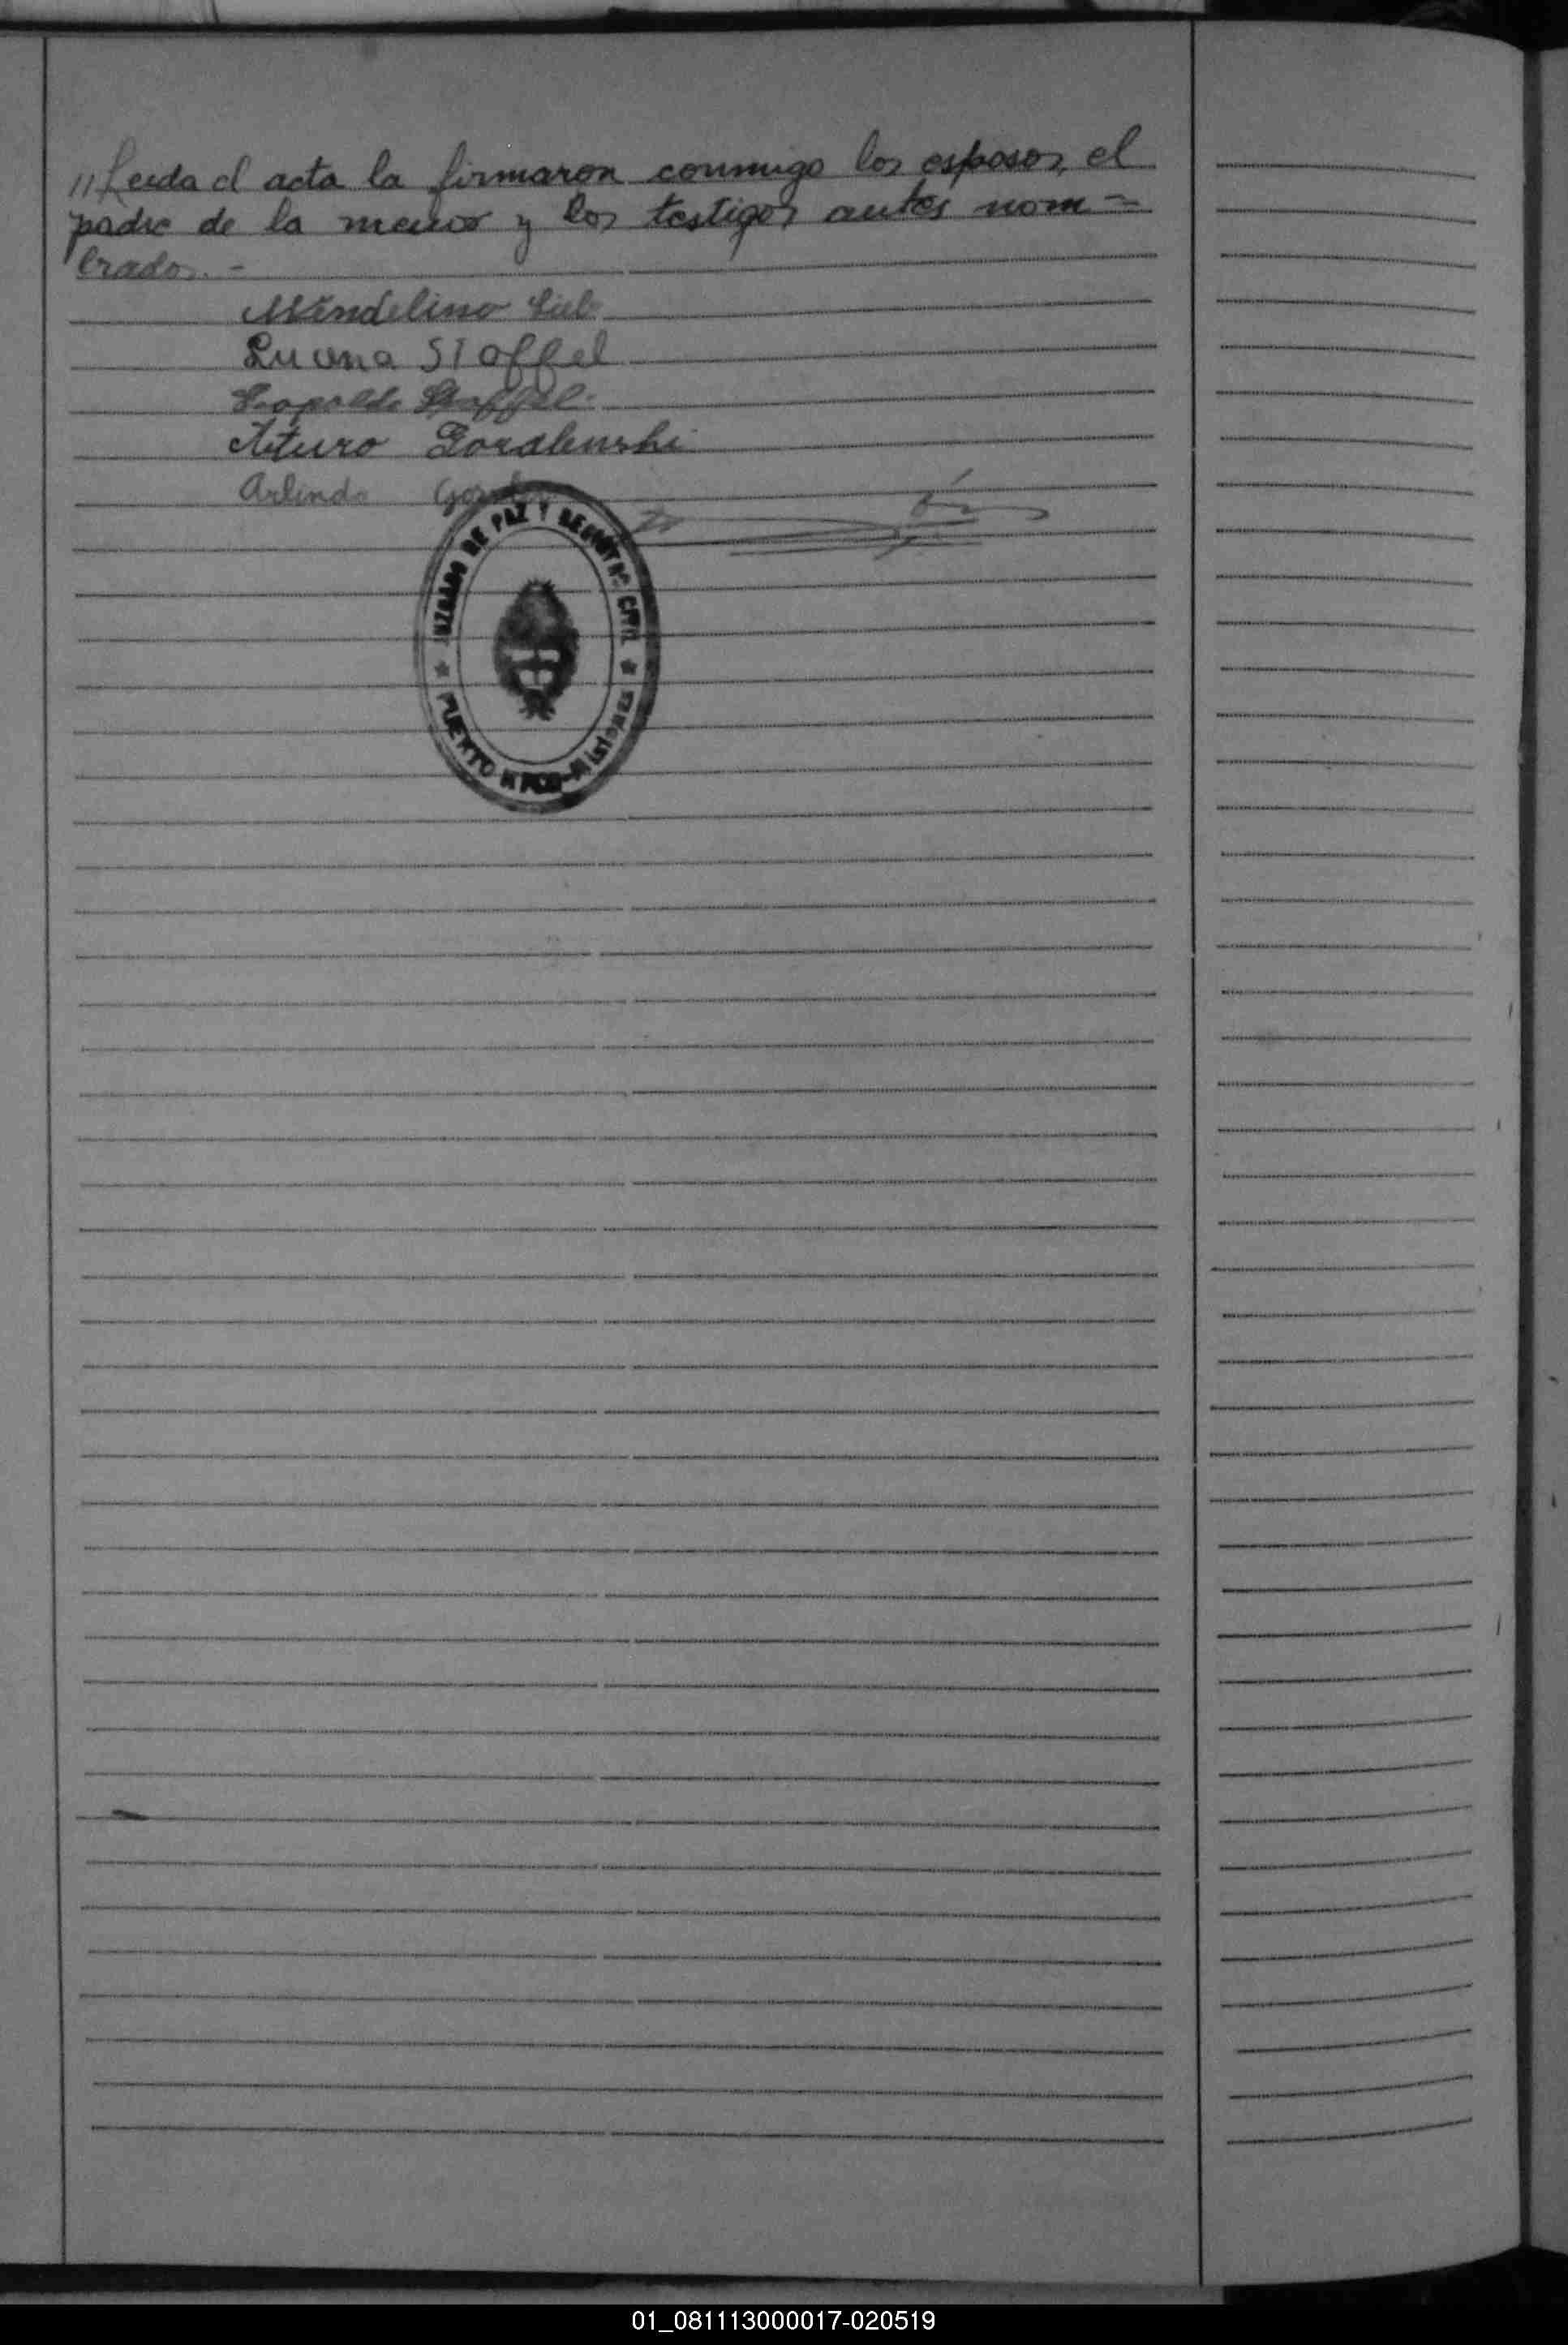 // Leida el acta la firmaron conmigo los esposos, el
padre de la menor y los testigos antes nom=
brados. -
Wendelino
Stoffel
Leopoldo Stoffel
Arturo
Arlindo
JUZGADO DE PAZ Y REGISTRO CIVIL
PUERTO RICO-Misiones
01_081113000017-020519